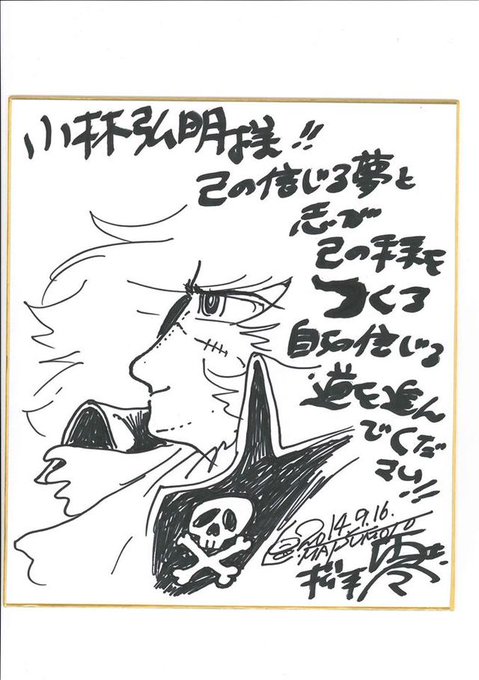 小林弘明様!!
己の信じる夢と
志が
己の未来を
つくる
自らの信じる
道を進ん
でくだ
さい!!
2014.9.16.
MATSUMOTO
松本零士